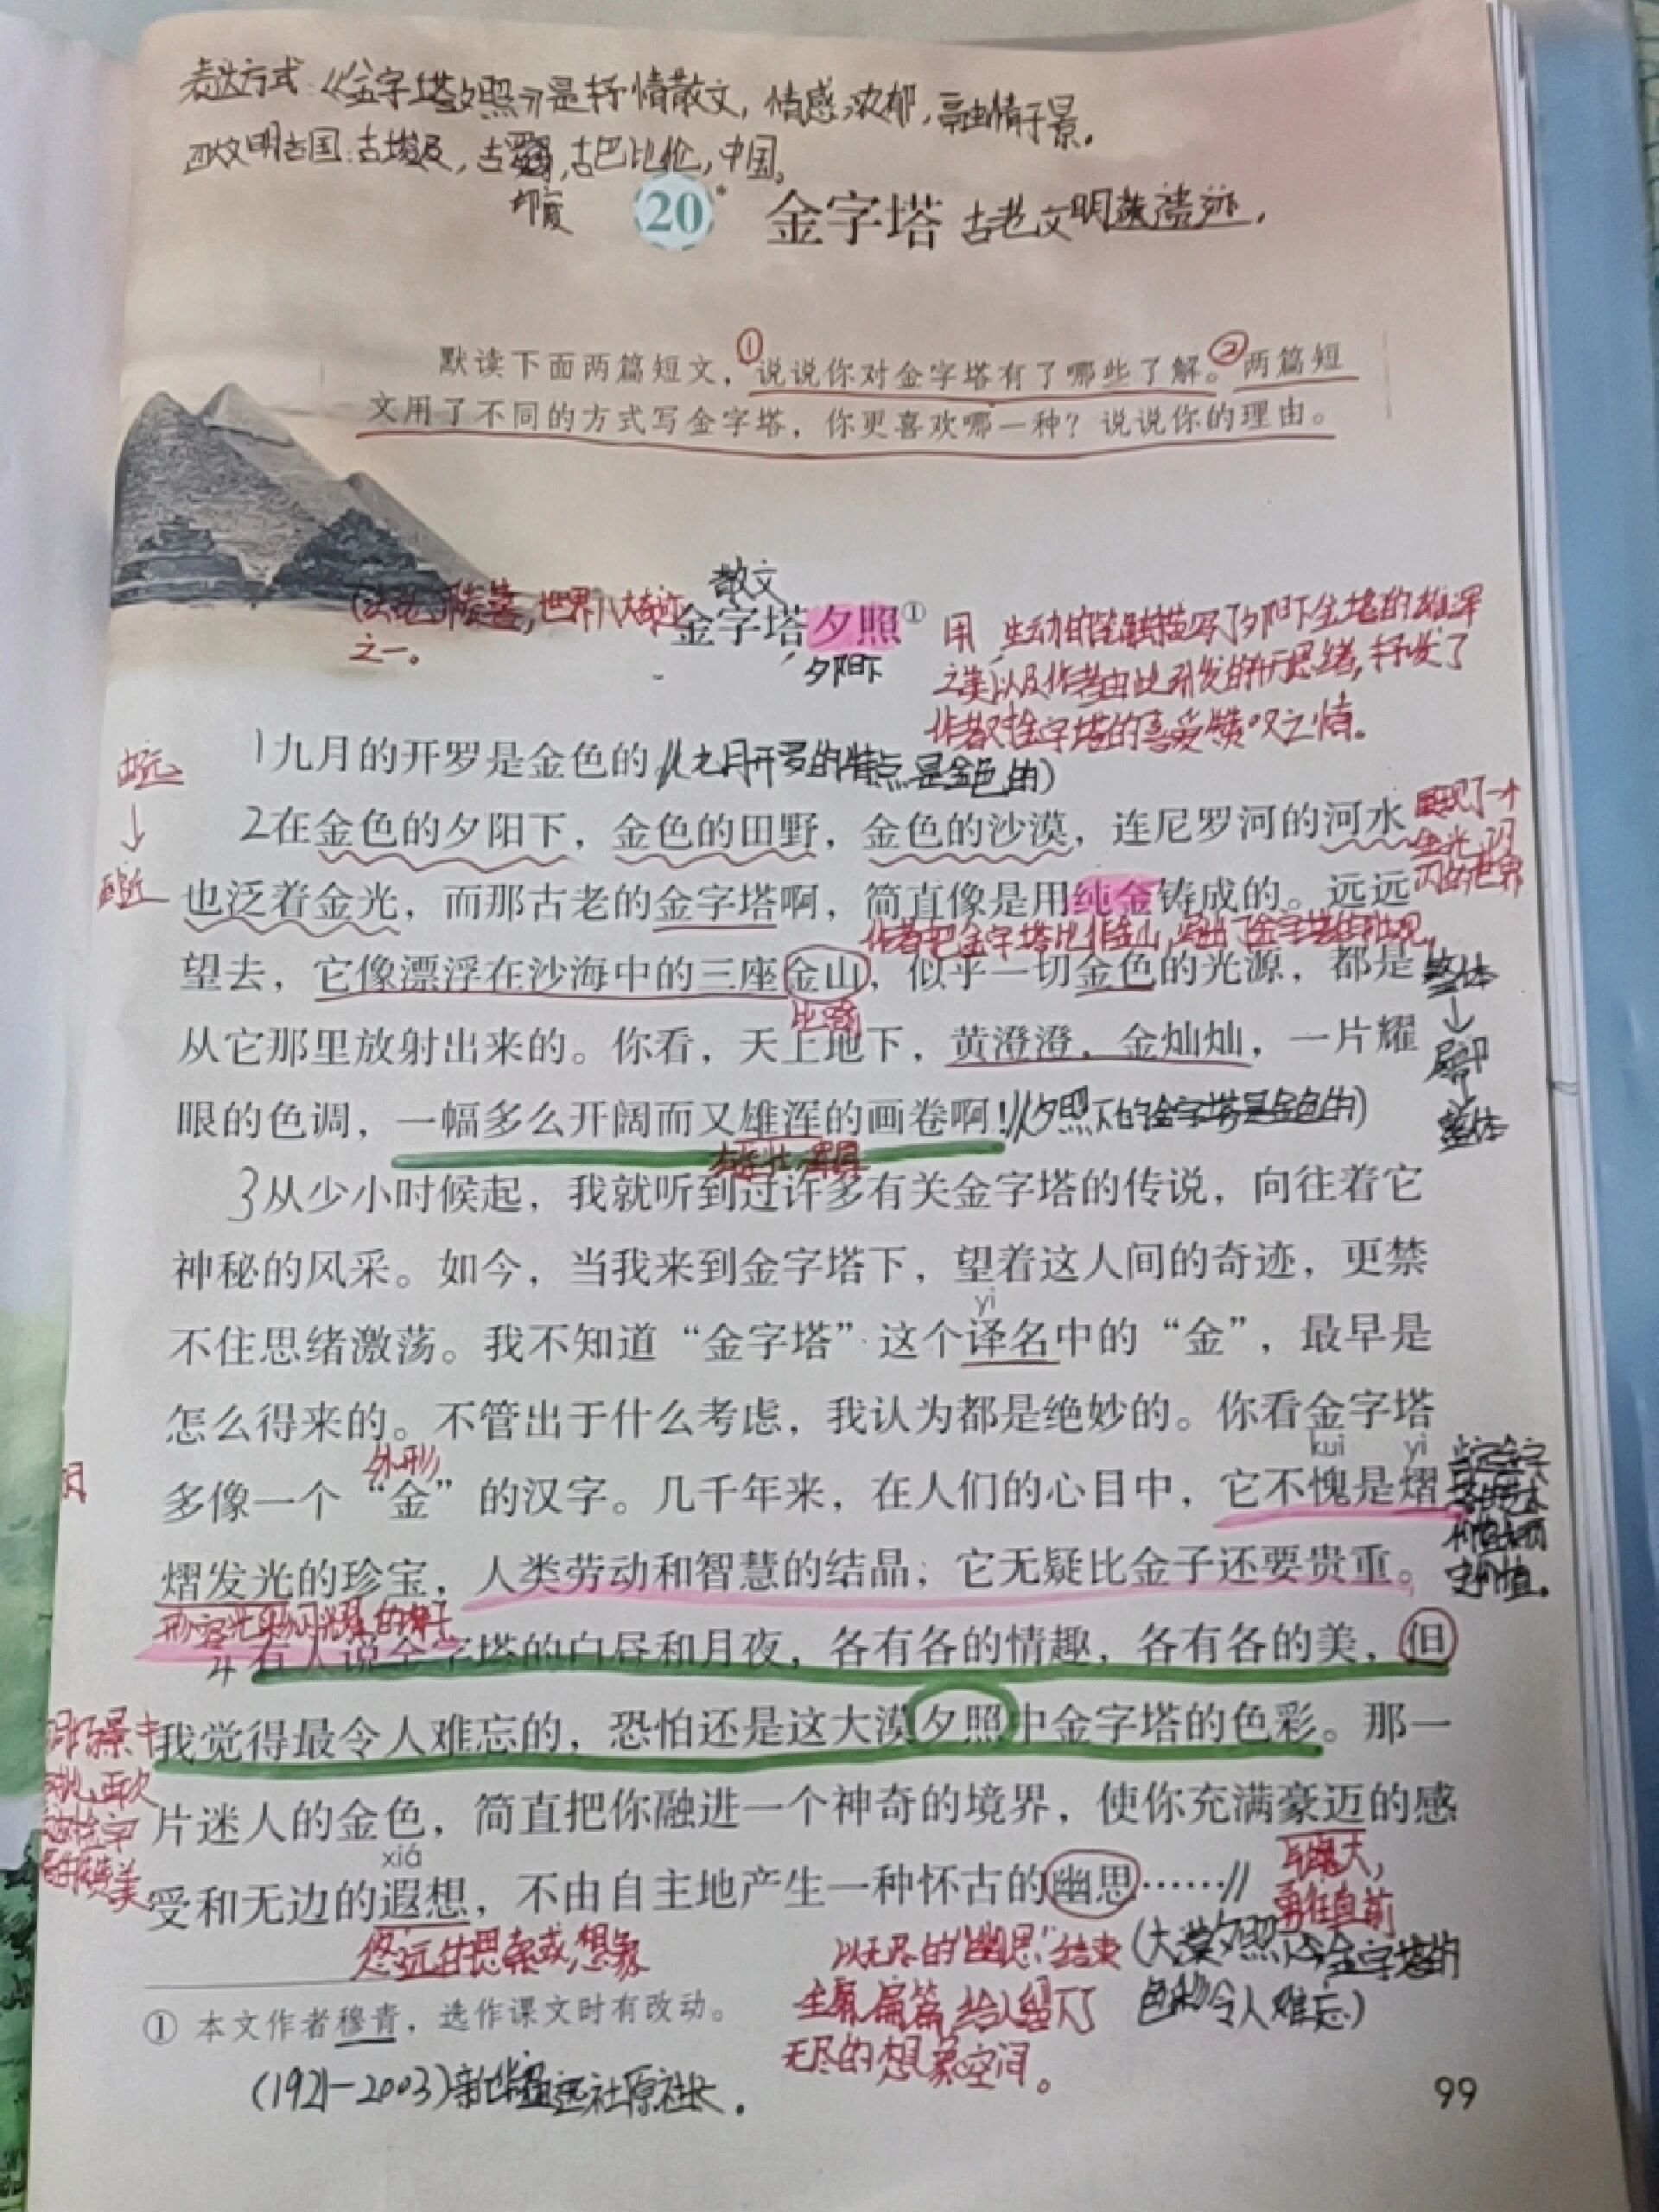 表达方式:《金字塔夕照》是抒情散文,情感浓郁,融情于景。
四大文明古国:古埃及,古,古巴比伦,中国。
印度
20* 金字塔 古老文明遗迹.
默读下面两篇短文,①说说你对金字塔有了哪些了解。②两篇短
文用了不同的方式写金字塔,你更喜欢哪一种?说说你的理由。
散文
世界八大奇迹
之一。
金字塔夕照①
夕阳下
用生动的笔触描写了夕阳下金塔的雄浑
之美,以及作者由此引发的思绪,抒发了
作者对金字塔的喜爱赞叹之情。
1九月的开罗是金色的 //(九月开罗的特点是金色的)
由远
↓
到近
2在金色的夕阳下,金色的田野,金色的沙漠,连尼罗河的河水
展现了一个
金光闪
闪的世界
也泛着金光,而那古老的金字塔啊,简直像是用纯金铸成的。远远
作者把金字塔比作金山,写出了金字塔的壮观。
望去,它像漂浮在沙海中的三座金山,似乎一切金色的光源,都是
比喻
整体
↓
局部
↓
整体
从它那里放射出来的。你看,天上地下,黄澄澄,金灿灿,一片耀
眼的色调,一幅多么开阔而又雄浑的画卷啊!//(夕照下的金字塔是金色的)
3从少小时候起,我就听到过许多有关金字塔的传说,向往着它
神秘的风采。如今,当我来到金字塔下,望着这人间的奇迹,更禁
yì
不住思绪激荡。我不知道“金字塔”这个译名中的“金”,最早是
怎么得来的。不管出于什么考虑,我认为都是绝妙的。你看金字塔
外形
kuì yì
多像一个“金”的汉字。几千年来,在人们的心目中,它不愧是熠
熠发光的珍宝,人类劳动和智慧的结晶;它无疑比金子还要贵重。
形容光彩闪耀的样子
4有人说金字塔的白昼和月夜,各有各的情趣,各有各的美,但
我觉得最令人难忘的,恐怕还是这大漠夕照中金字塔的色彩。那一
片迷人的金色,简直把你融进一个神奇的境界,使你充满豪迈的感
xiá
受和无边的遐想,不由自主地产生一种怀古的幽思……//
气魄大,
勇往直前
悠远的思索或想象
(大漠夕照下金字塔的
色彩令人难忘)
以无尽的“幽思”结束
全篇,给人留下了
无尽的想象空间。
① 本文作者穆青,选作课文时有改动。
(1921-2003)新华通讯社原社长.
99